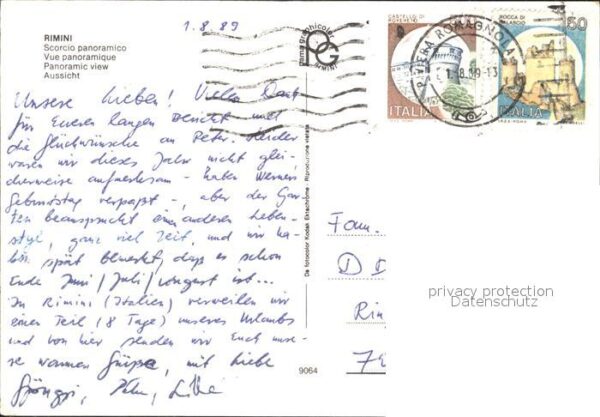 1.8.89
RIMINI
Scorcio panoramico
Vue panoramique
Panoramic view
Aussicht
Unsere Lieben! Vielen Dank
für Eueren langen Bericht und
die Glückwünsche an Peter. Leider
waren wir dieses Jahr nicht glei-
cherweise aufmerksam - haben Werners
Geburtstag verpasst -, aber der Gar-
ten beansprucht einen anderen Leben-
styl, ganz viel Zeit, und wir ha-
ben spät bemerkt, dass es schon
Ende Juni / Juli / August ist...
In Rimini (Italien) verweilen wir
einen Teil (8 Tage) unseres Urlaubs
und von hier senden wir Euch unse-
re warmen Grüsse, mit Liebe
CASTELLO DI
ROVERETO
ITALIA
ROCCA DI
50
ITALIA
RIVIERA ROMAGNOLA
RIMINI
Da fotocolor Kodak Ektachrome - Riproduzione vietata
9064
Fam.
D D
Rin
privacy protection
Datenschutz